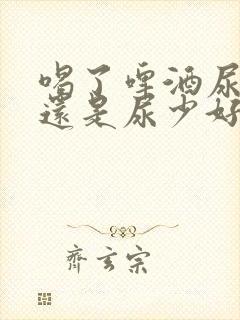 喝了啤酒尿
還是尿少好
齊玄宗